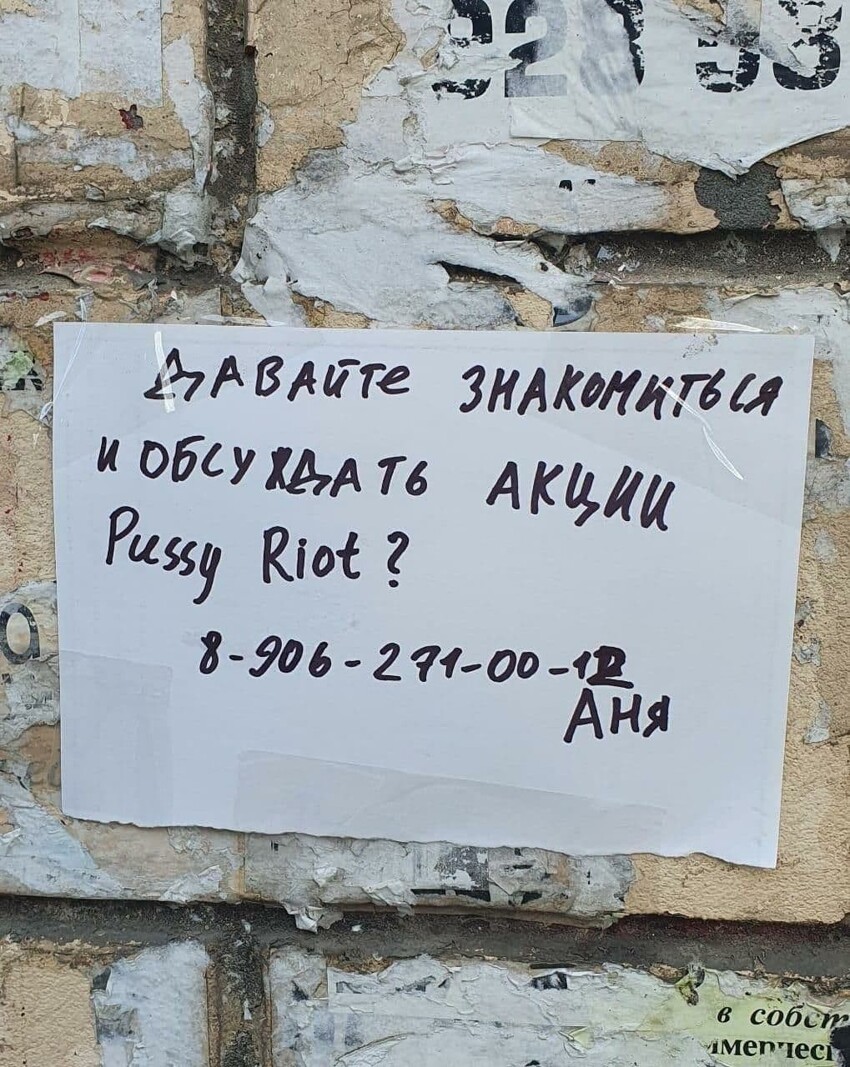 92 98
ДАВАЙТЕ ЗНАКОМИТЬСЯ
И ОБСУЖДАТЬ АКЦИИ
Pussy Riot?
8-906-271-00-1
АНЯ
а
в собст